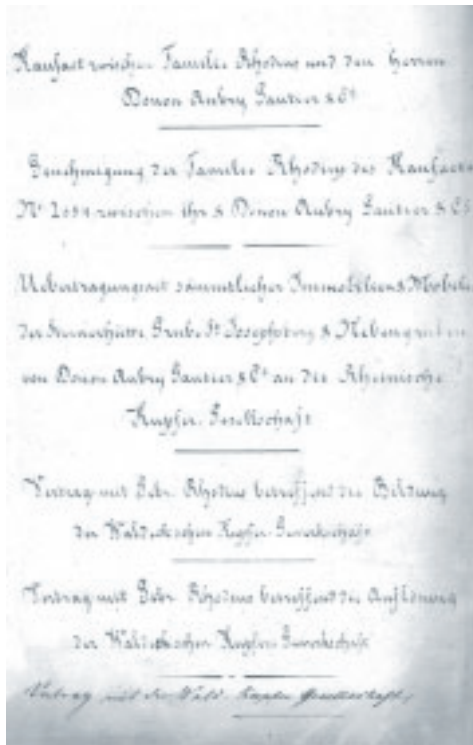 Kaufact zwischen Familie Rhodius und den Herren
Donon Aubry Gautier & Cº
Genehmigung der Familie Rhodius des Kaufactes
Nº 2054 zwischen ihr & Donon Aubry Gautier & Cº
Uebertragungsact sämmtlicher Immobilien & Mobilien
der Sternerhütte Grube St Josephsberg & Nebengruben
von Donon Aubry Gautier & Cº an die Rheinische
Kupfer-Gesellschaft
Vertrag mit Gebr. Rhodius betreffend die Bildung
der Waldeckischen Kupfer-Gewerkschaft
Vertrag mit Gebr. Rhodius betreffend die Auflösung
der Waldeckischen Kupfer-Gewerkschaft
Vertrag mit der Wald. Kupfer Gesellschaft,